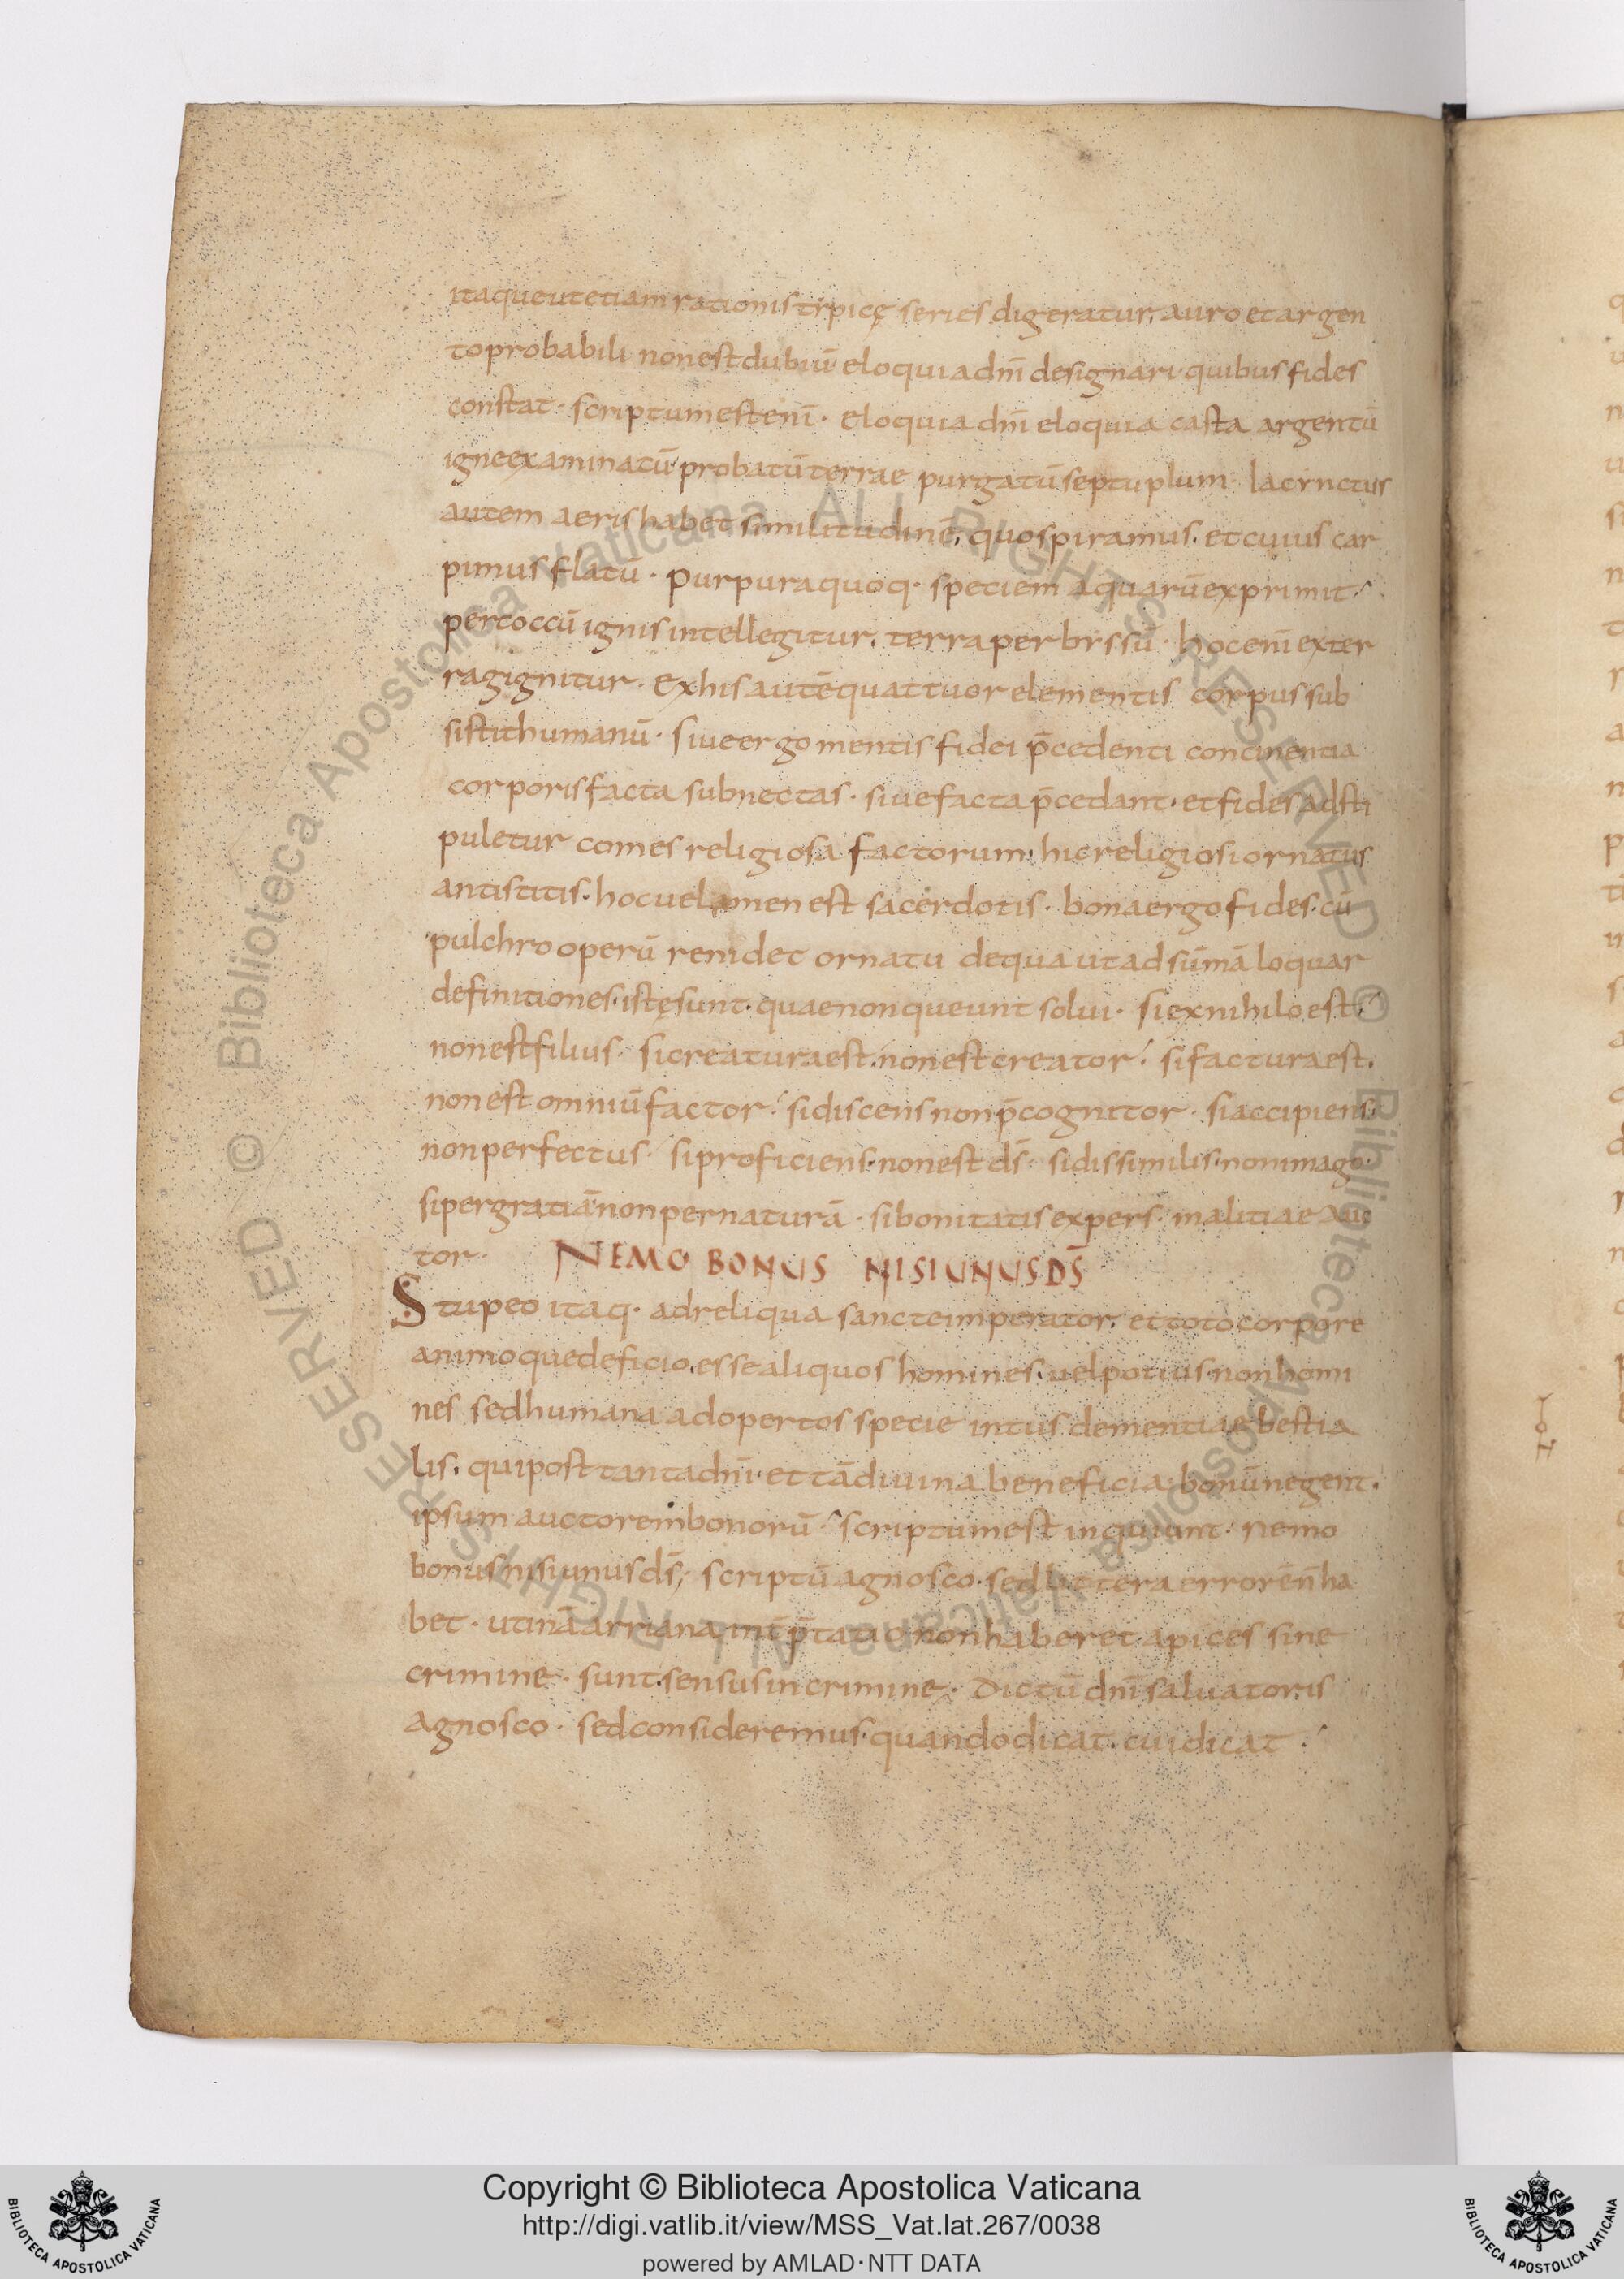 itaque ut etiam rationis trpicę series digeratur, auro et argen
to probabili non est dubiū eloquia dnī designari quibus fides
constat · scriptum est eni̅ · eloquia dnī eloquia casta argentū
igne examinatū probatū terrae purgatū septuplum
autem aeris habet similitudinē, quo spiramus · et cuius car
pimus flatū · purpura quoq· speciem aquarū exprimit
per coccū ignis intellegitur, terra per brssū · hoc eni̅ ex ter
ra gignitur · ex his autē quattuor elementis corpus sub
sistit humanū · siue ergo mentis fidei p̄cedenti concinentia
corporis facta subnectas · siue facta p̄cedant · et fides adsti
puletur comes religiosa factorum · hic religiosi ornatus
antistitis · hoc uelamen est sacerdotis · bona ergo fides · cū
pulchro operū renidet ornatu de qua ut ad sūmā loquar
definitiones · istę sunt · quae non queunt solui · si ex nihilo est
non est filius · si creatura est · non est creator · si factura est ·
non est omniū factor · si discens non p̄cognitor · si accipiens
non perfectus · si proficiens · non est ds̄ · si dissimilis · non imago
si per gratiā non per naturā · si bonitatis expers · malitiae auc
tor · NEMO BONUS NISI UNUS DS̄
Stupeo itaq· ad reliqua sancte imperator, et toto corpore
animoque deficio, esse aliquos homines, uel potius non homi
nes sed humana adopertos specie intus dementiae bestia
lis, qui post tanta dnī · et tā diuina beneficia, bonū negent ·
ipsum auctorem bonorū · scriptum est inquiunt · nemo
bonus nisi unus ds̄; scriptū agnosco · sed littera errorē n̄ ha
bet · utinā arriana int̄ p̄tatio non haberet, apices sine
crimine · sunt · sensus in crimine · Dictū dnī saluatoris
agnosco · sed consideremus · quando dicat · cui dicat
Copyright © Biblioteca Apostolica Vaticana
http://digi.vatlib.it/view/MSS_Vat.lat.267/0038
powered by AMLAD · NTT DATA